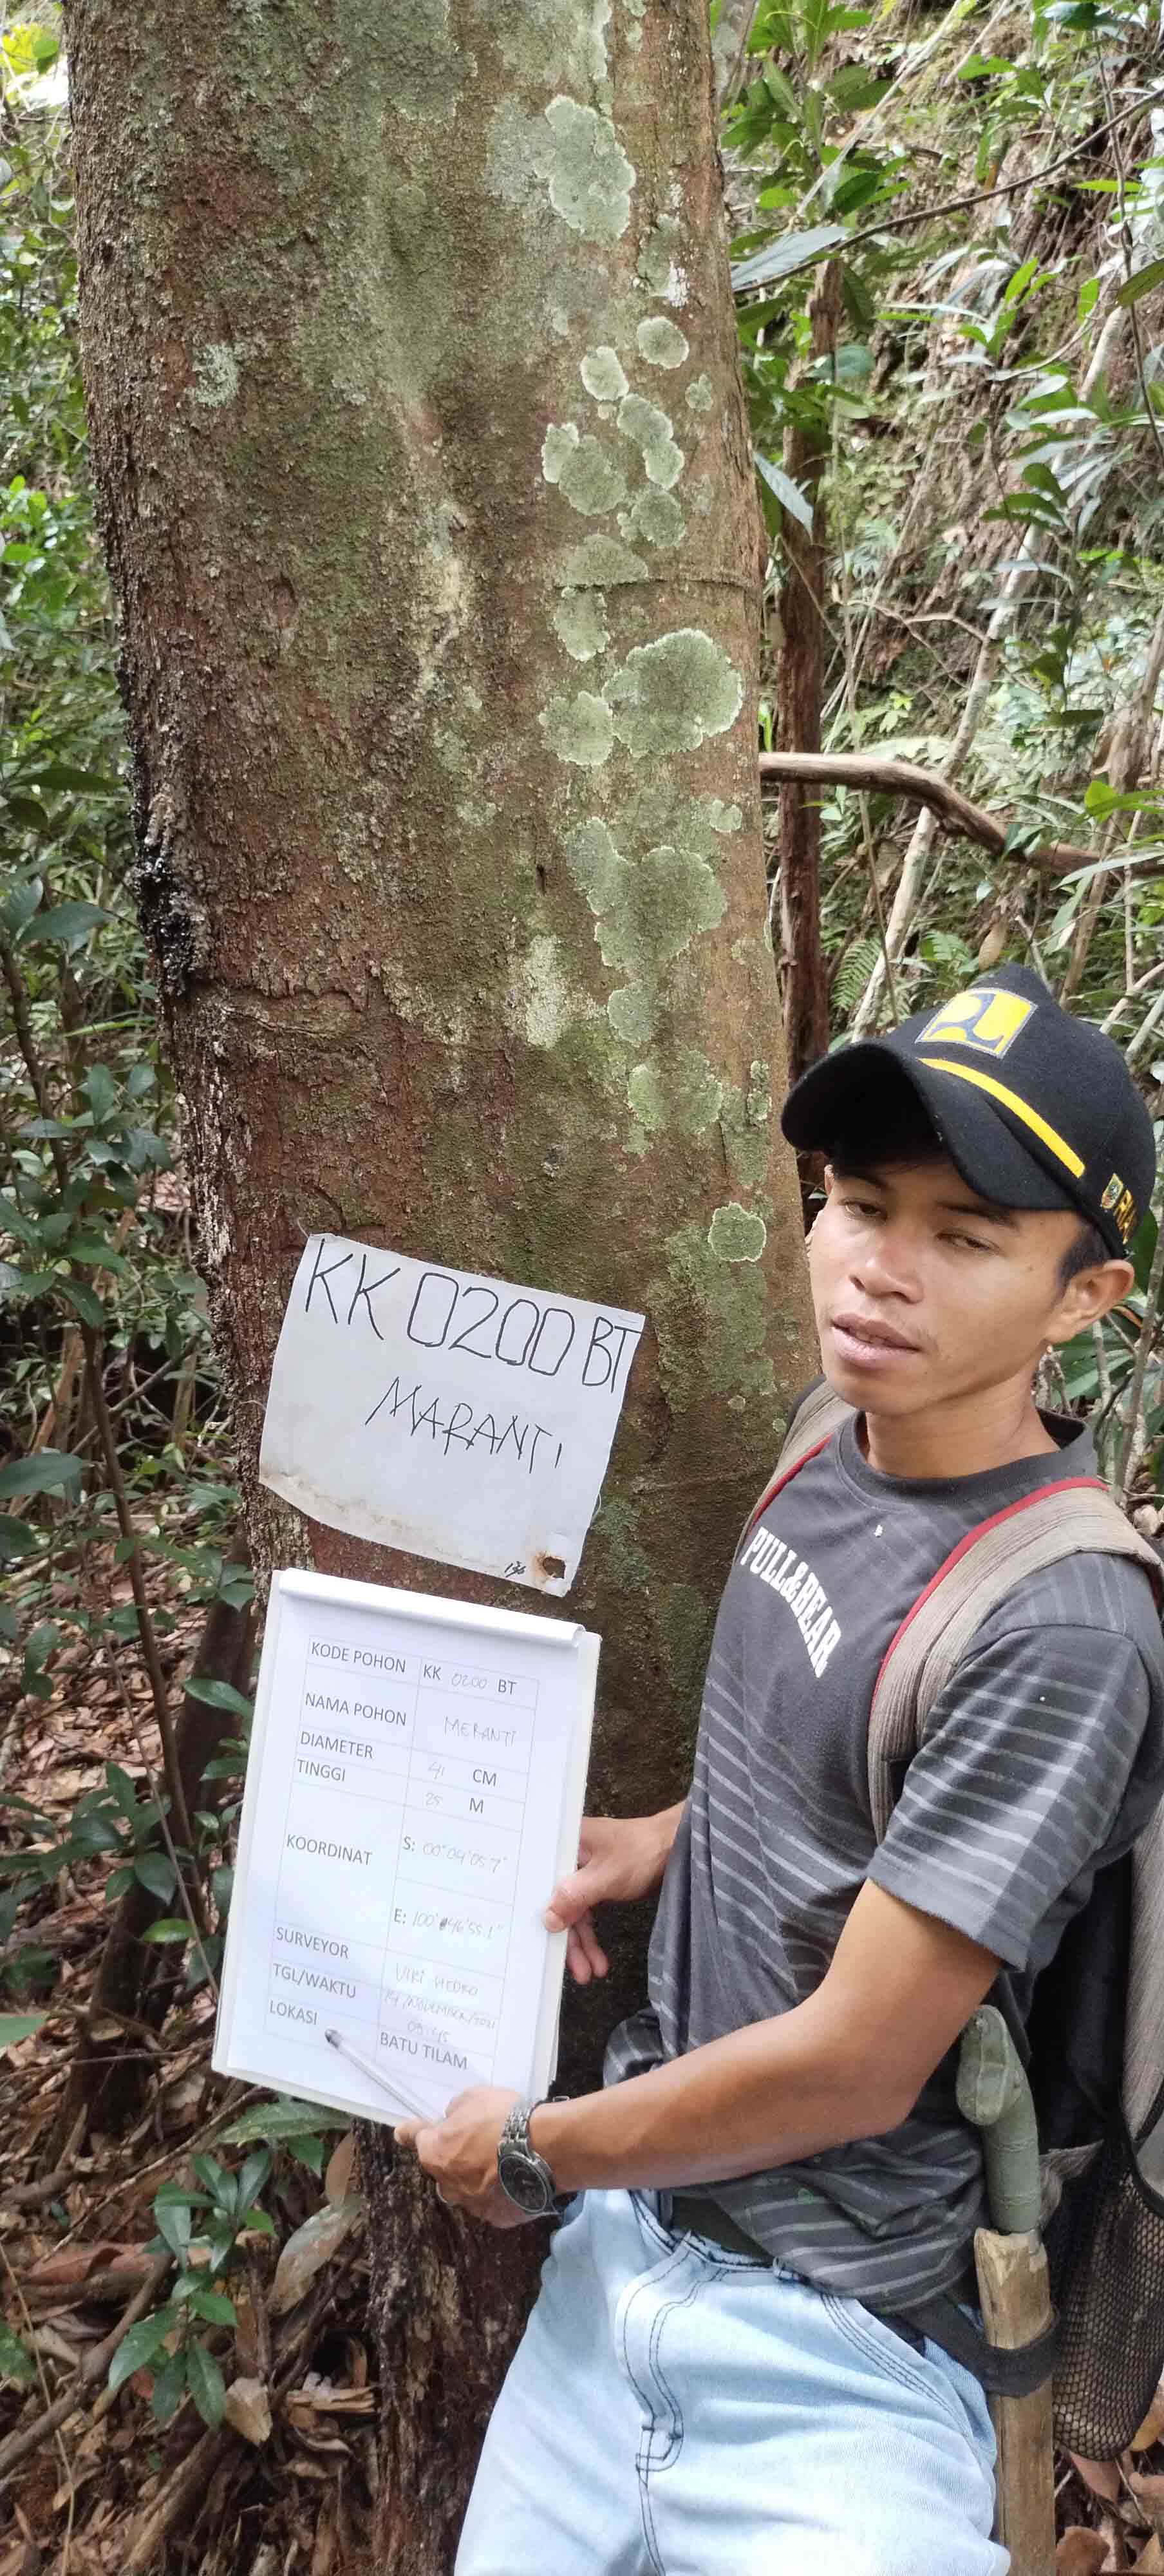 KK 0200 BT
MARANTI
136
KODE POHON KK 0200 BT
NAMA POHON MERANTI
DIAMETER 41 CM
TINGGI 25 M
KOORDINAT S: 00°04'05.7"
E: 100°46'55.1"
SURVEYOR VIKI HEDKO
TGL/WAKTU 14/NOVEMBER/2021
09:45
LOKASI BATU TILAM
PULL&BEAR